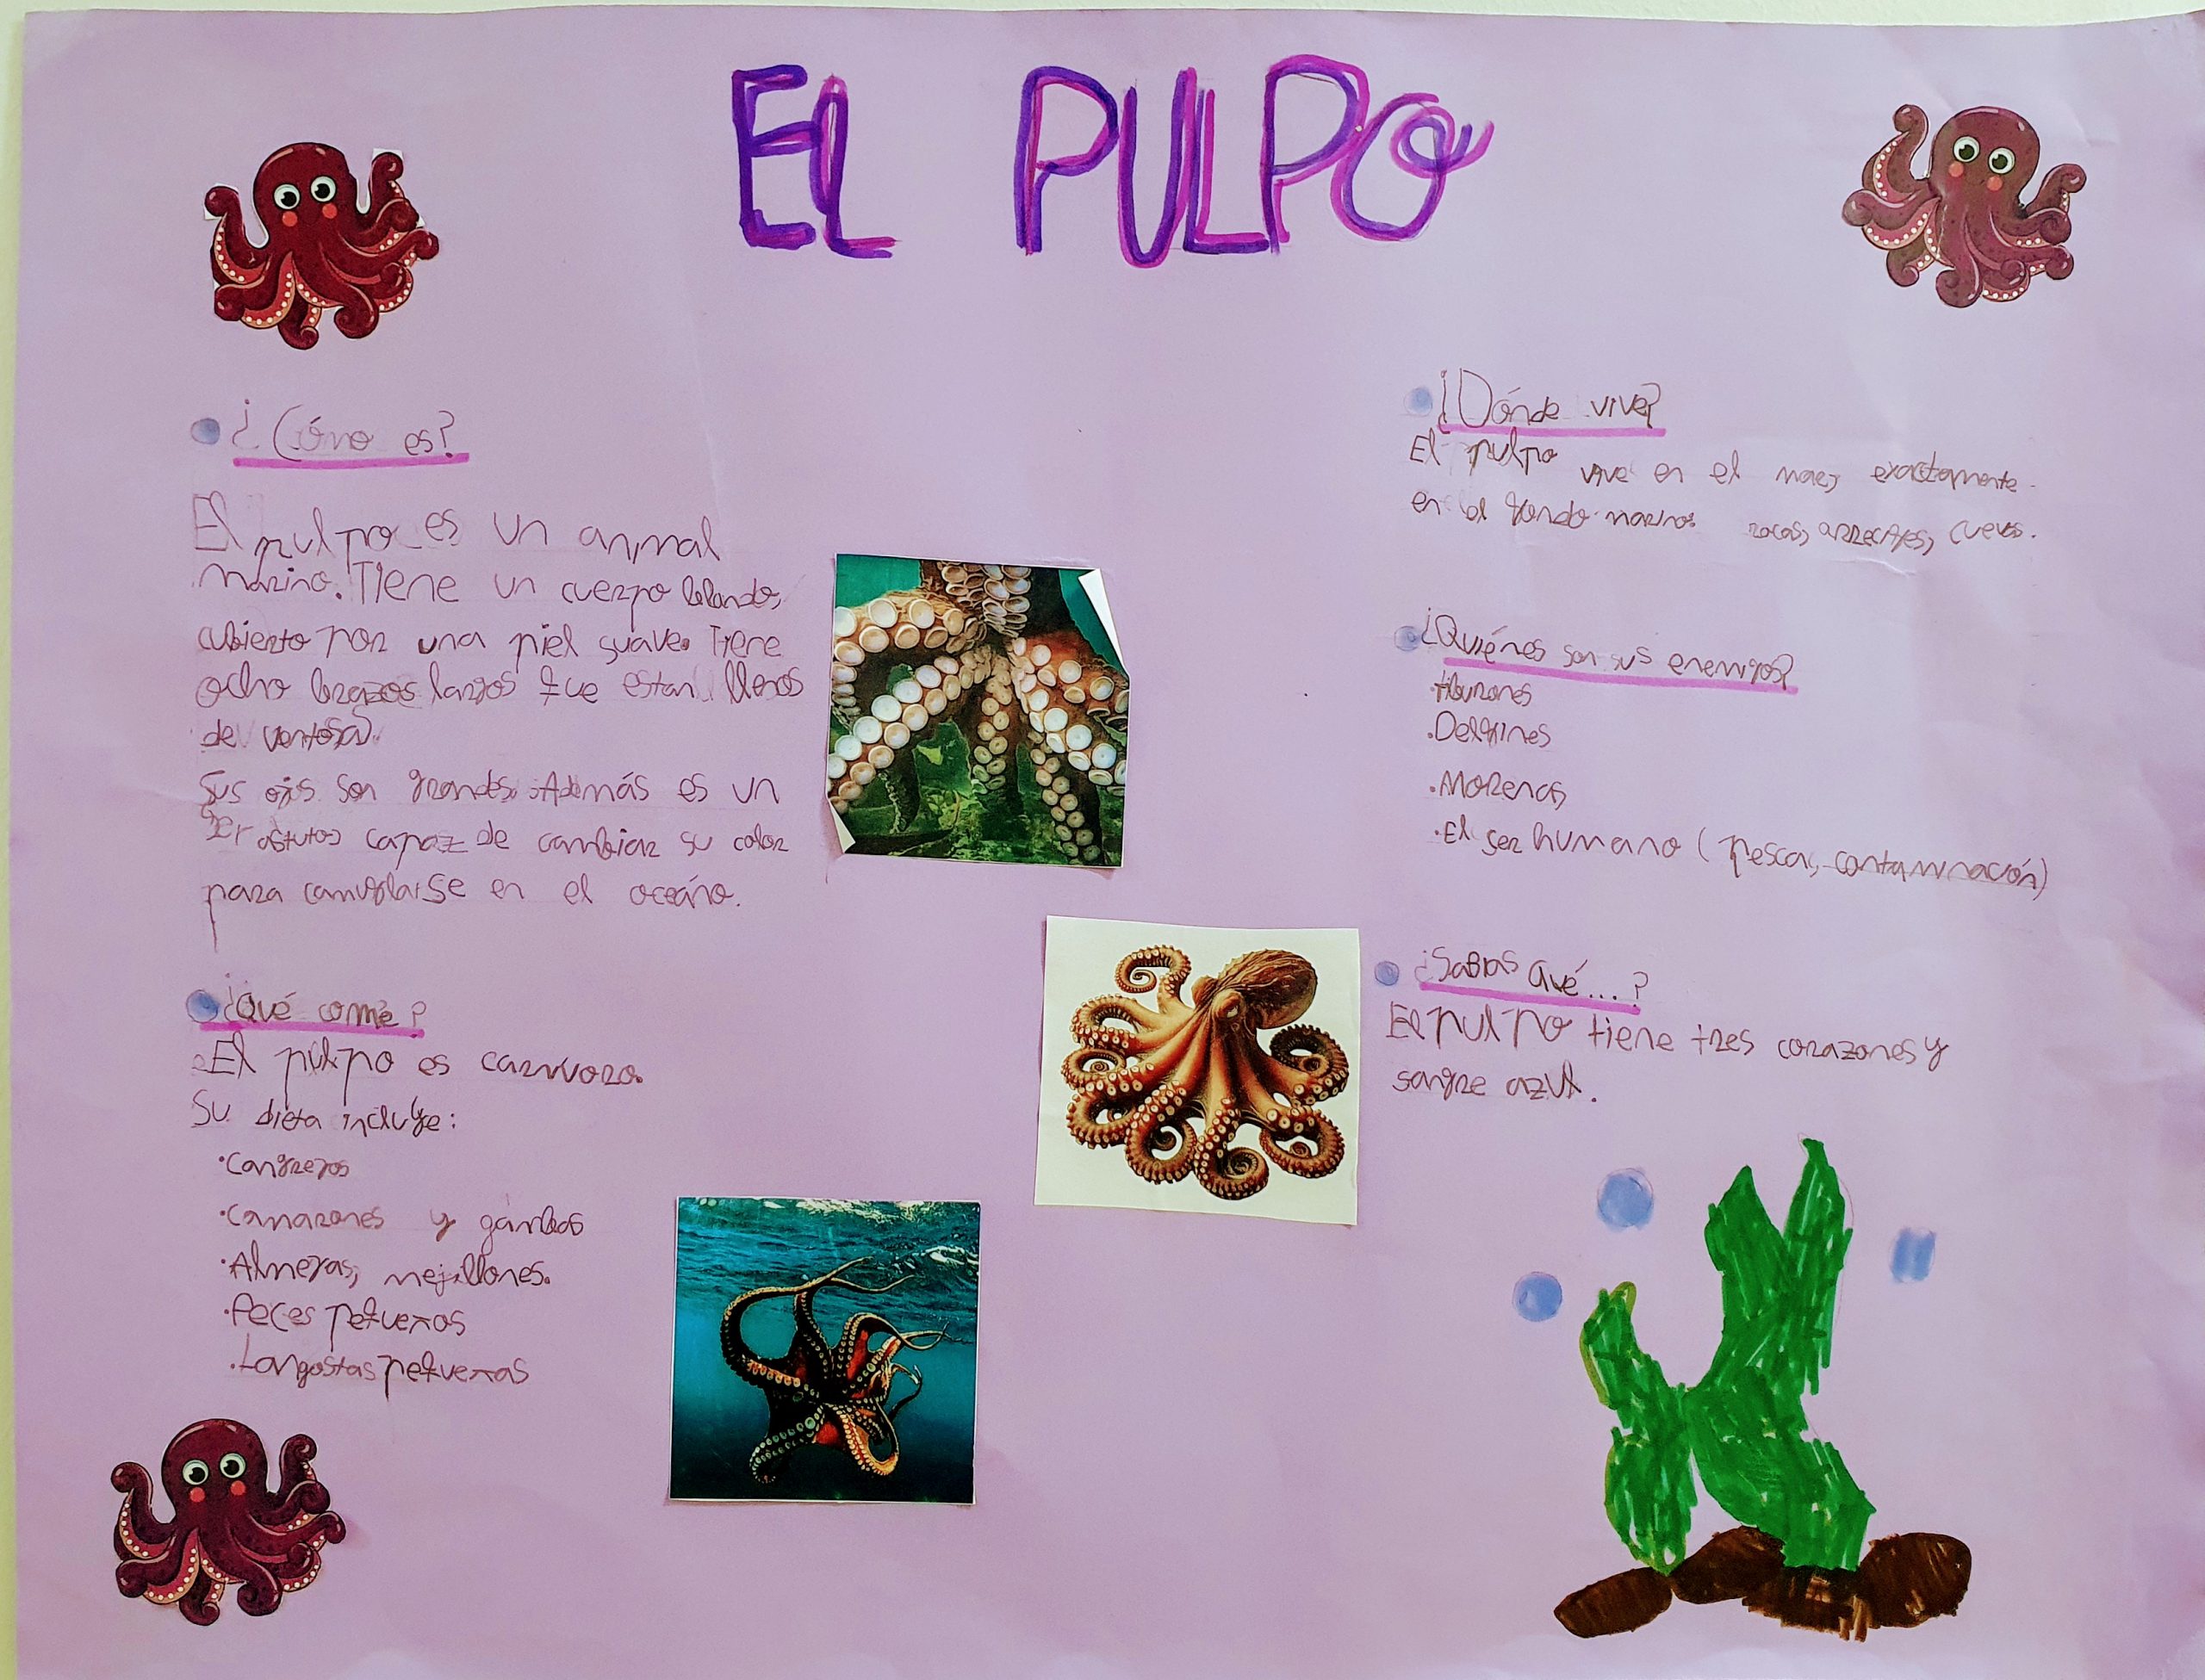 EL PULPO
¿Cómo es?
El pulpo es un animal
marino. Tiene un cuerpo blando,
cubierto por una piel suave. Tiene
ocho brazos largos que estan llenos
de ventosa.
Sus ojos son grandes. Además es un
ser astuto, capaz de cambiar su color
para camuflarse en el oceáno.
¿Qué come?
El pulpo es carnívoro.
Su dieta incluye:
·Cangrejos
·Camarones y gambas
·Almejas, mejillones.
·Peces pequeños
·Langostas pequeñas
¿Dónde vive?
El pulpo vive en el mar, exactamente
en el fondo marino. rocas, arrecifes, cuevas.
¿Quiénes son sus enemigos?
·tiburones
·Delfines
·Morenas
·El ser humano (pesca, contaminación)
¿Sabias qué...?
El pulpo tiene tres corazones y
sangre azul.